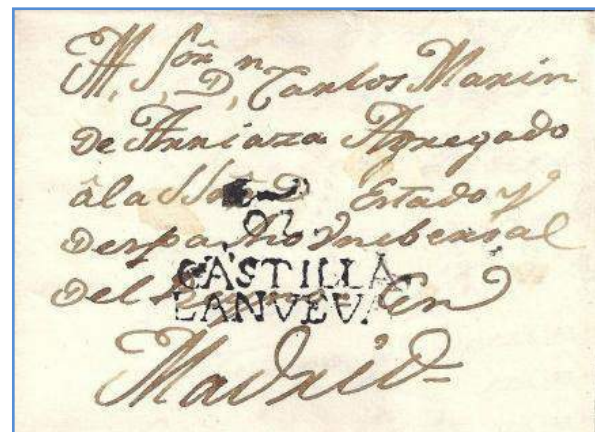 A, Sōr, Dn, Carlos Marin
De Arriaza Agregado
â la SSria D Estado y
Despacho Unibersal
CASTILLA
LANUEUA
Del en
Madrid=